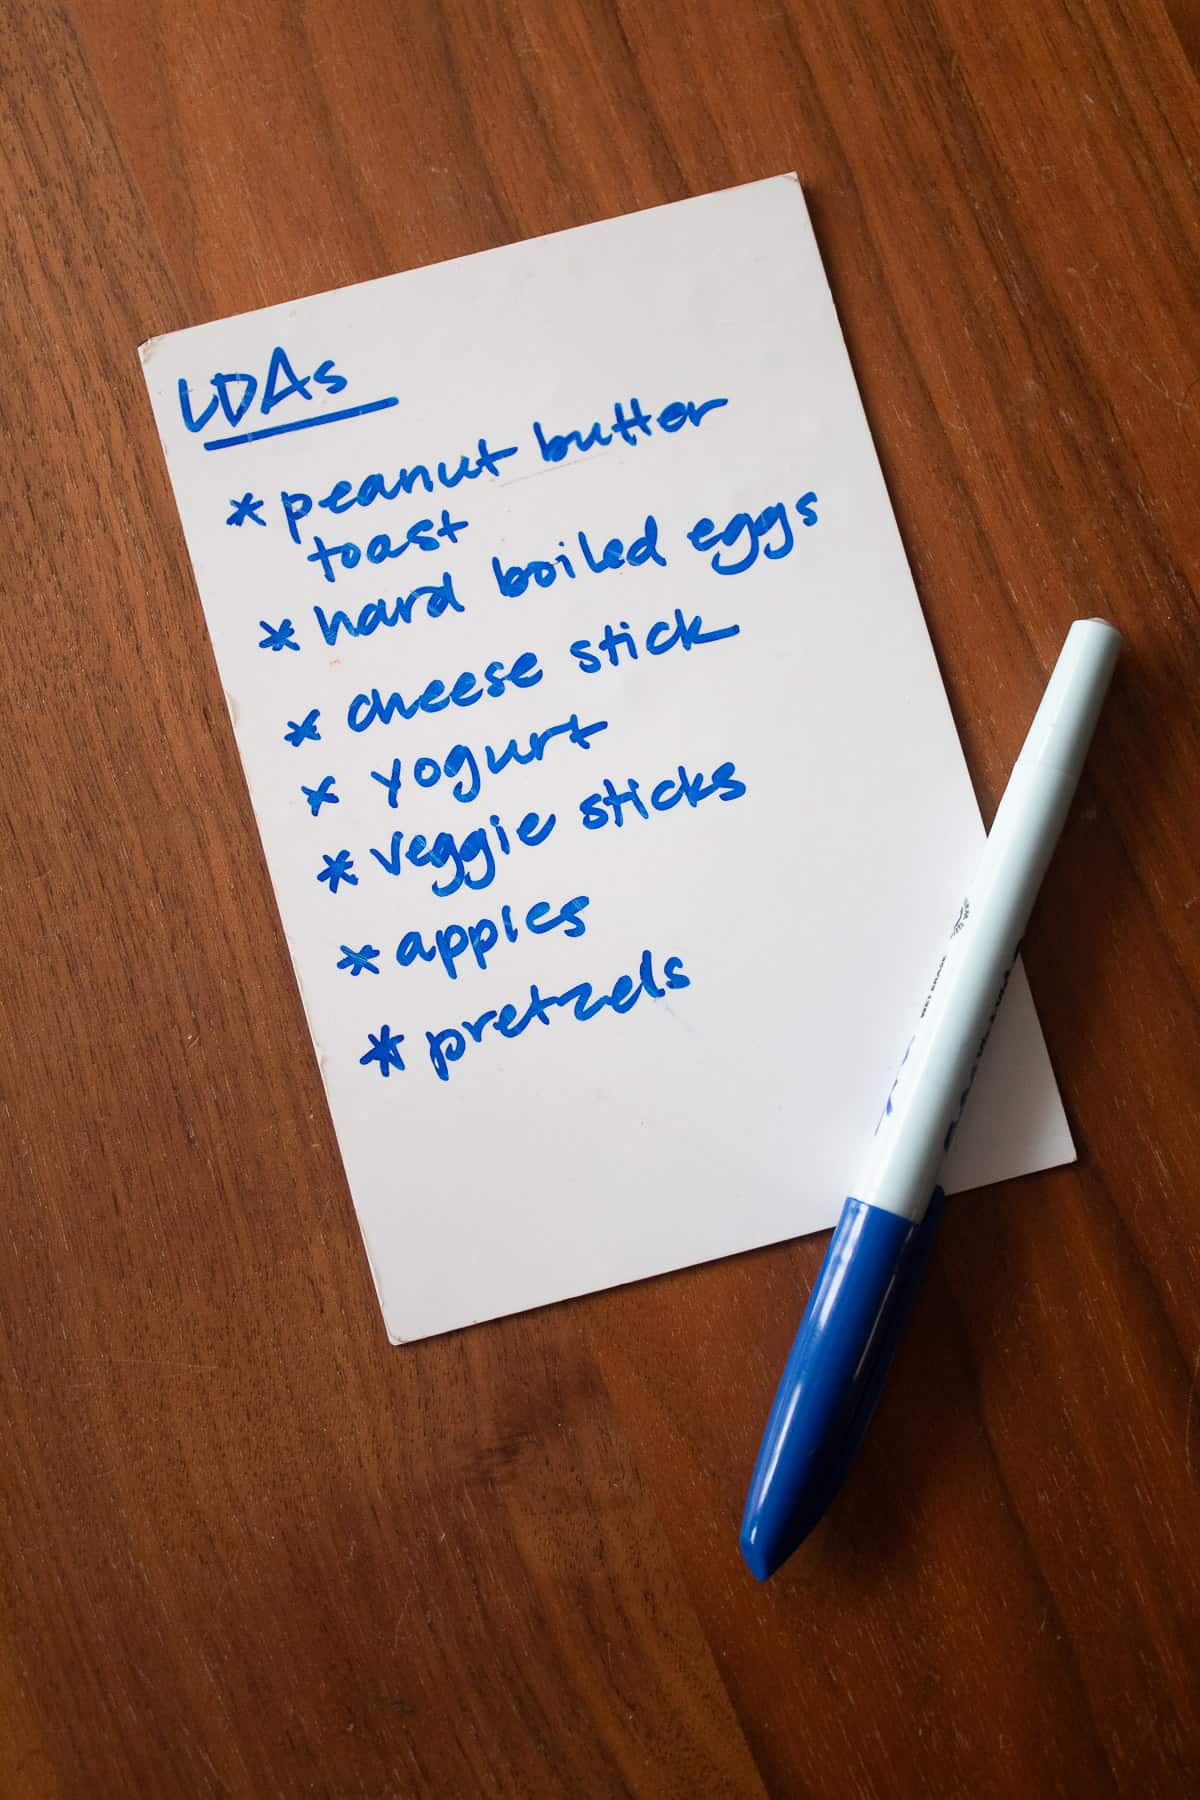 LDAs
* peanut butter
toast
* hard boiled eggs
* cheese stick
* yogurt
* veggie sticks
* apples
* pretzels
WET ERASE